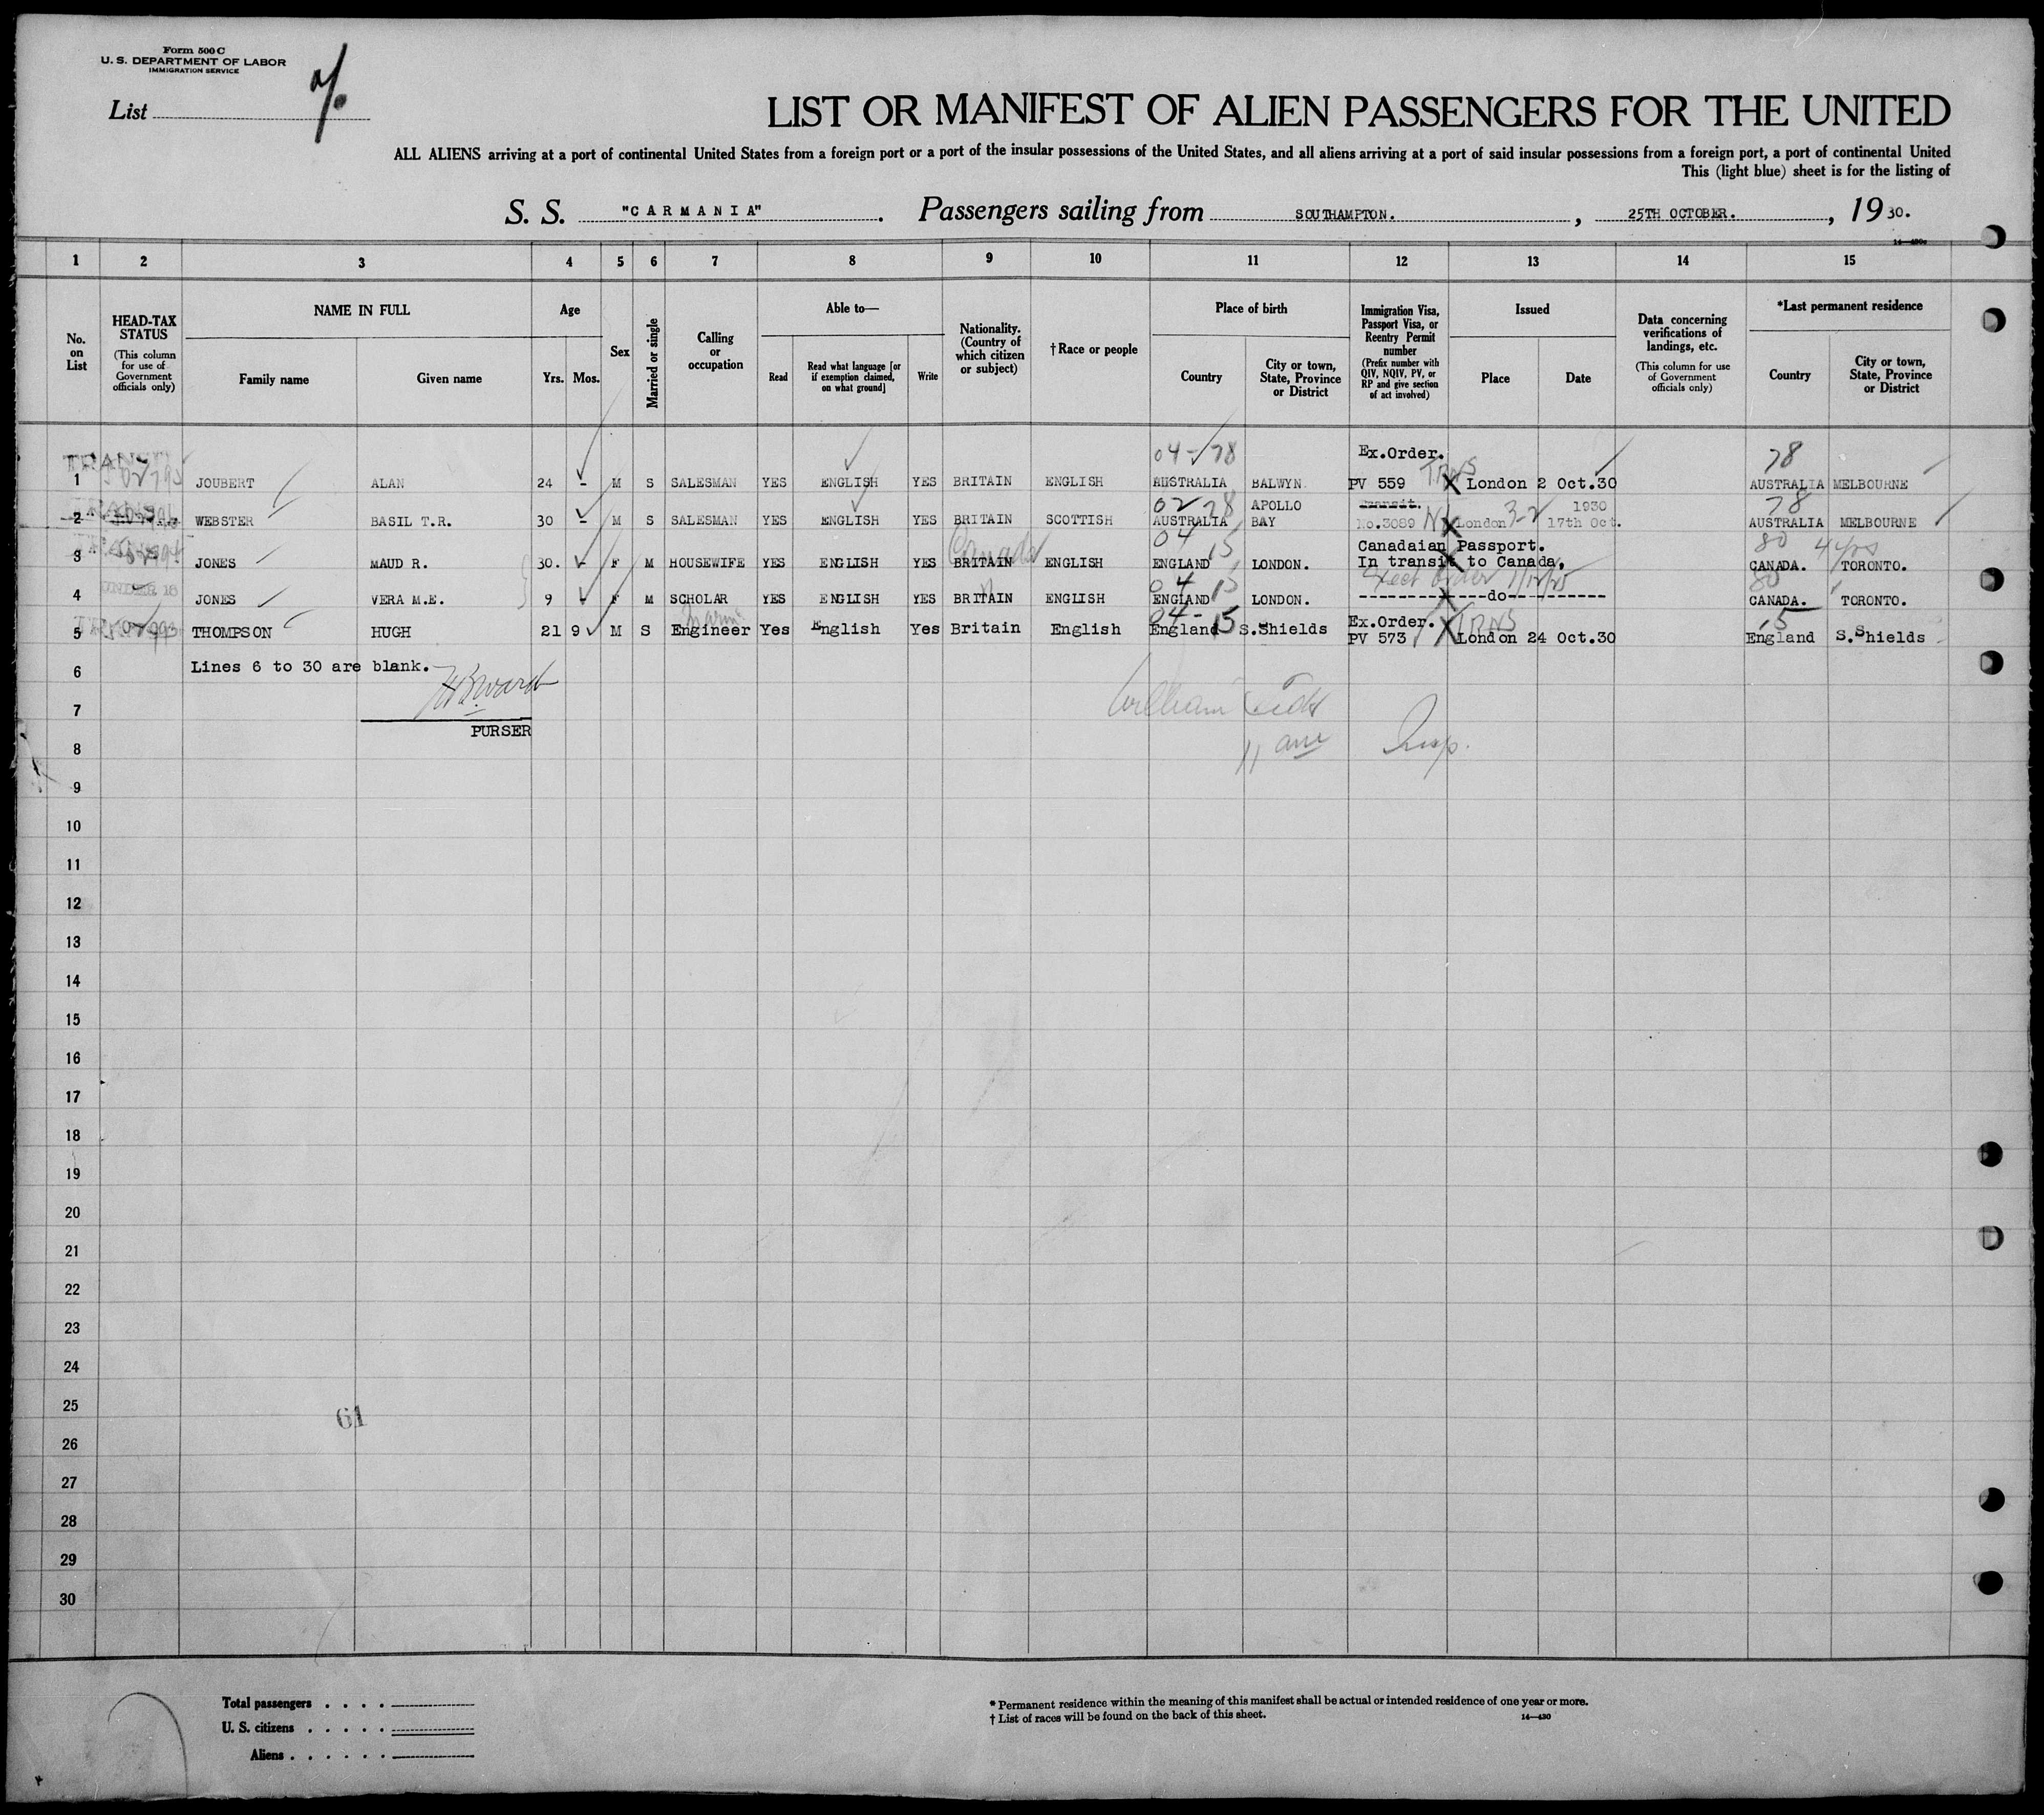 Form 500 C
U. S. DEPARTMENT OF LABOR
IMMIGRATION SERVICE
List
LIST OR MANIFEST OF ALIEN PASSENGERS FOR THE UNITED
ALL ALIENS arriving at a port of continental United States from a foreign port or a port of the insular possessions of the United States, and all aliens arriving at a port of said insular possessions from a foreign port, a port of continental United
This (light blue) sheet is for the listing of
S. S. "CARMANIA" . Passengers sailing from SOUTHAMPTON. , 25TH OCTOBER. , 19 30.
1 2 3 4 5 6 7 8 9 10 11 12 13 14 15
No. on List
HEAD-TAX STATUS
(This column for use of Government officials only)
NAME IN FULL
Family name Given name
Age
Yrs. Mos.
Sex
Married or single
Calling or occupation
Able to—
Read
Read what language [or if exemption claimed, on what ground]
Write
Nationality. (Country of which citizen or subject)
† Race or people
Place of birth
Country
City or town, State, Province or District
Immigration Visa, Passport Visa, or Reentry Permit number
(Prefix number with QIV, NQIV, PV, or RP and give section of act involved)
Issued
Place Date
Data concerning verifications of landings, etc.
(This column for use of Government officials only)
*Last permanent residence
Country
City or town, State, Province or District
04 - 78 Ex.Order. 78
1 JOUBERT ALAN 24 - M S SALESMAN YES ENGLISH YES BRITAIN ENGLISH AUSTRALIA BALWYN. PV 559 TRNS London 2 Oct.30 AUSTRALIA MELBOURNE
02 78 APOLLO Transit. 1930 78
2 WEBSTER BASIL T.R. 30 - M S SALESMAN YES ENGLISH YES BRITAIN SCOTTISH AUSTRALIA BAY No.3089 London 3-2 17th Oct. AUSTRALIA MELBOURNE
Canada 04 15 Canadaian Passport. 80 4 yrs
3 JONES MAUD R. 30. - F M HOUSEWIFE YES ENGLISH YES BRITAIN ENGLISH ENGLAND LONDON. In transit to Canada. CANADA. TORONTO.
04 15 80
4 UNDER 16 JONES VERA M.E. 9 - F M SCHOLAR YES ENGLISH YES BRITAIN ENGLISH ENGLAND LONDON. ------------do----------- CANADA. TORONTO.
04 - 15 Ex.Order. TRNS 15
5 THOMPSON HUGH 21 9 M S Engineer Yes English Yes Britain English England S.Shields PV 573 London 24 Oct.30 England S.Shields
6 Lines 6 to 30 are blank.
7 William
PURSER
8 11 am Insp.
9
10
11
12
13
14
15
16
17
18
19
20
21
22
23
24
25
61
26
27
28
29
30
Total passengers . . . .
U. S. citizens . . . . .
Aliens . . . . . .
* Permanent residence within the meaning of this manifest shall be actual or intended residence of one year or more.
† List of races will be found on the back of this sheet. 14—430